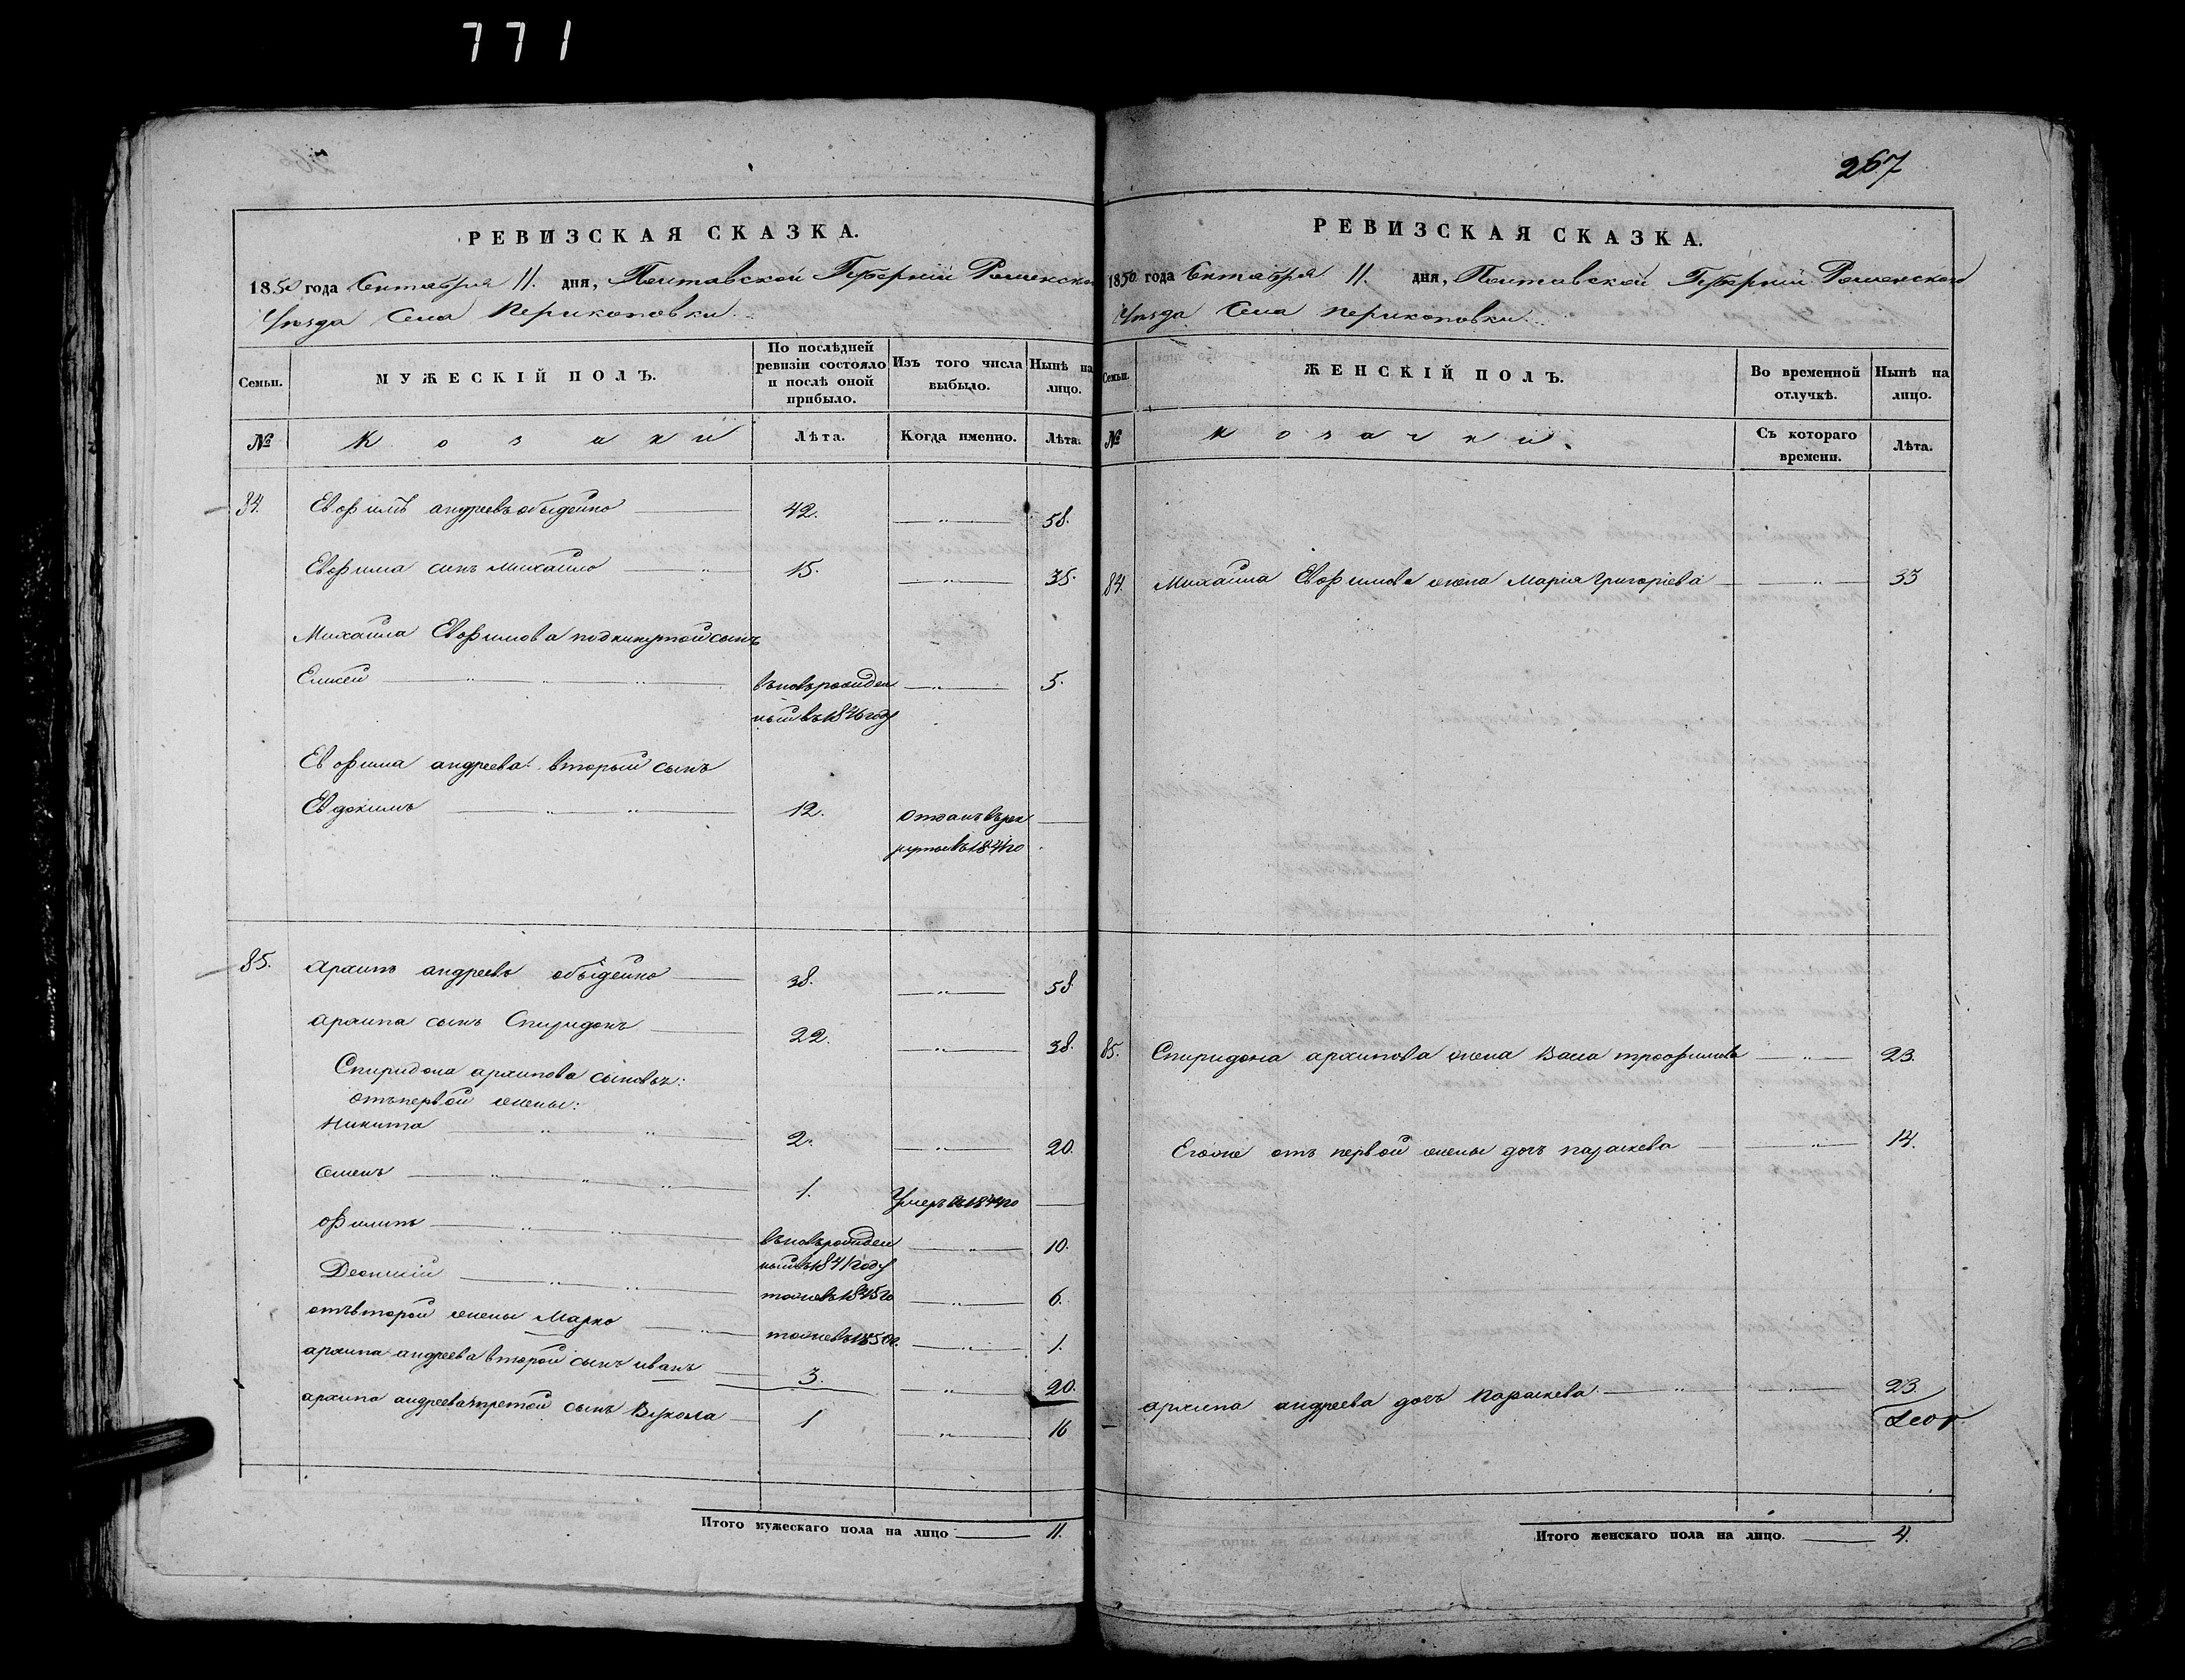 771
РЕВИЗСКАЯ СКАЗКА.
1850 года Октября 11. дня, Полтавской Губернии Роменскаго
Уѣзда Села Перикоповки.
Семьи. МУЖЕСКІЙ ПОЛЪ. По послѣдней ревизіи состояло и послѣ оной прибыло. Изъ того числа выбыло. Нынѣ на лицо.
№ Козаки Лѣта. Когда именно. Лѣта.
84. Евфимъ андреевъ обыдейко 42. 58.
Евфима сынъ Михайло 15. 35.
Михайла Евфимова подкинутой сынъ
Елисей вновьрожден 5.
ный въ 1846 году
Евфима андреева второй сынъ
Евдокимъ 12. отданъ в рек
руты въ 184 го
85. Архипъ андреевъ обыдейко 38. 58
архипа сынъ Спиридонъ 22. 38.
Спиридона архипова сыновья:
отъ первой жены:
Никита 2. 20.
семенъ 1. Умеръ в 1844 го
филипъ вновьрожден 10.
ный въ 1841 году
Деонисий тоже въ 1845 го 6.
отъ второй жены Марко тоже въ 1850 г. 1.
архипа андреева второй сынъ иванъ 3. 20.
архипа андреева третой сынъ Вукола 1 16
Итого мужескаго пола на лицо 11.
267
РЕВИЗСКАЯ СКАЗКА.
1850 года Октября 11. дня, Полтавской Губернии Роменскаго
Уѣзда Села Перикоповки.
Семьи. ЖЕНСКІЙ ПОЛЪ. Во временной отлучкѣ. Нынѣ на лицо.
№ Козачки. Съ котораго времени. Лѣта.
84. Михайла Евфимова жена Марія григоріева 33
85. Спиридона архипова жена Васа трофимова 23.
Егоже отъ первой жены дочь параскева 14.
архипа андреева дочь Параскева 23.
Итого женскаго пола на лицо. 4.